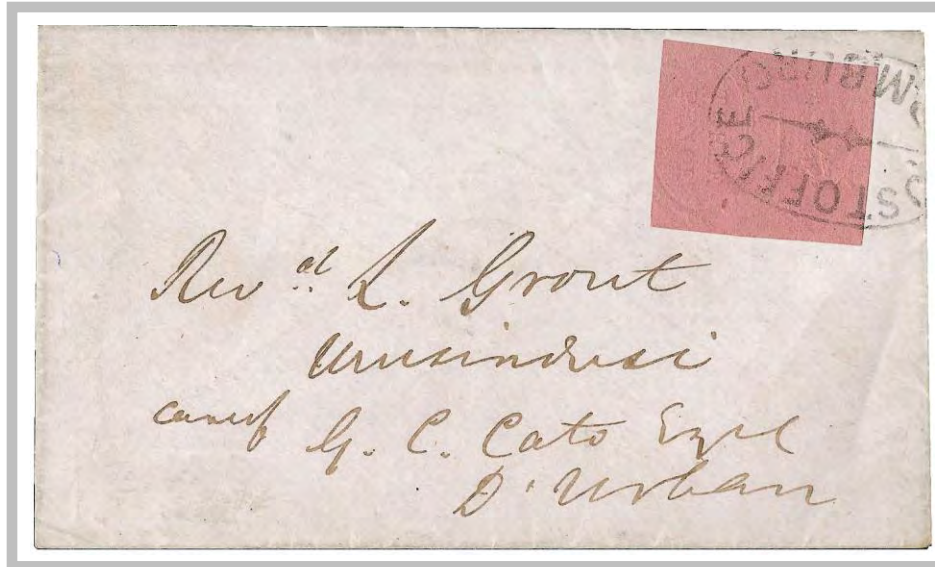 POST OFFICE
MBURG
Rev.d L. Grout
Umsindusi
care of G. C. Cato Esqre
D'Urban